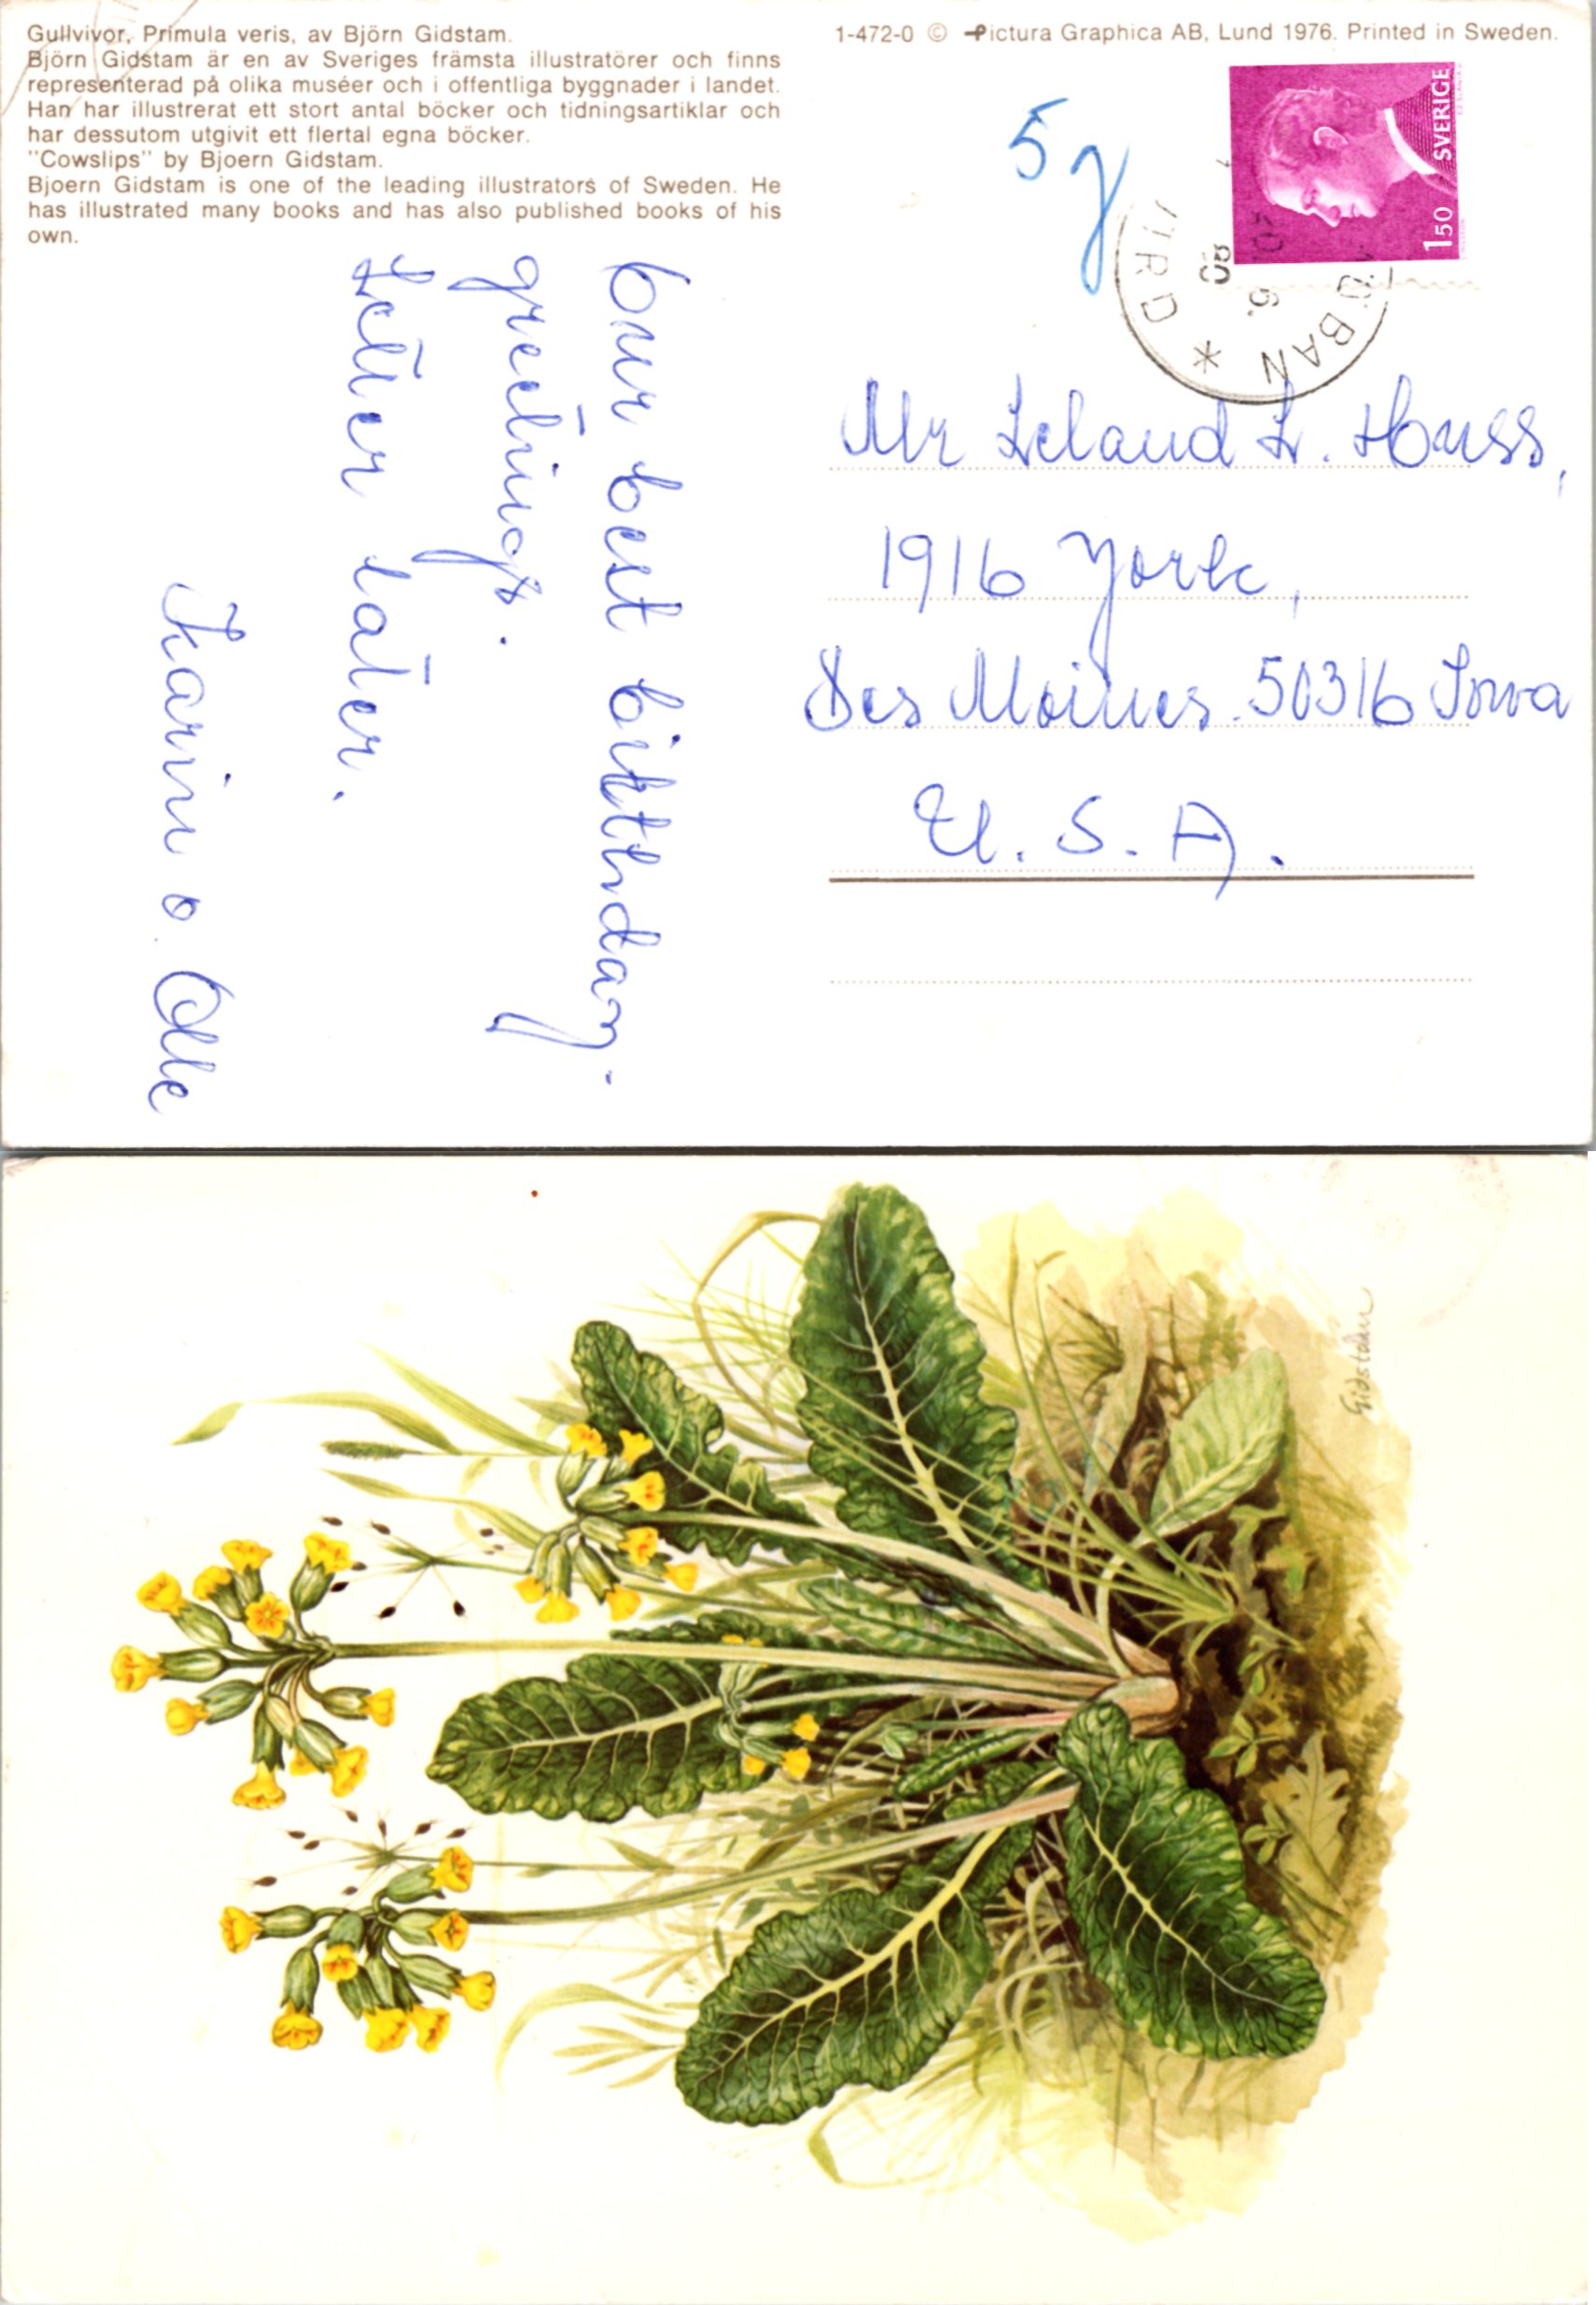 Gullvivor, Primula veris, av Björn Gidstam.
Björn Gidstam är en av Sveriges främsta illustratörer och finns
representerad på olika muséer och i offentliga byggnader i landet.
Han har illustrerat ett stort antal böcker och tidningsartiklar och
har dessutom utgivit ett flertal egna böcker.
"Cowslips" by Bjoern Gidstam.
Bjoern Gidstam is one of the leading illustrators of Sweden. He
has illustrated many books and has also published books of his
own.
1-472-0 © Pictura Graphica AB, Lund 1976. Printed in Sweden.
5 g
SVERIGE
150
BAN *
Our best birthday-
greetings.
Letter later.
Karin o. Olle
Mr Leland L. Huss,
1916 York,
Des Moines 50316 Iowa
U.S.A.
Gidstam